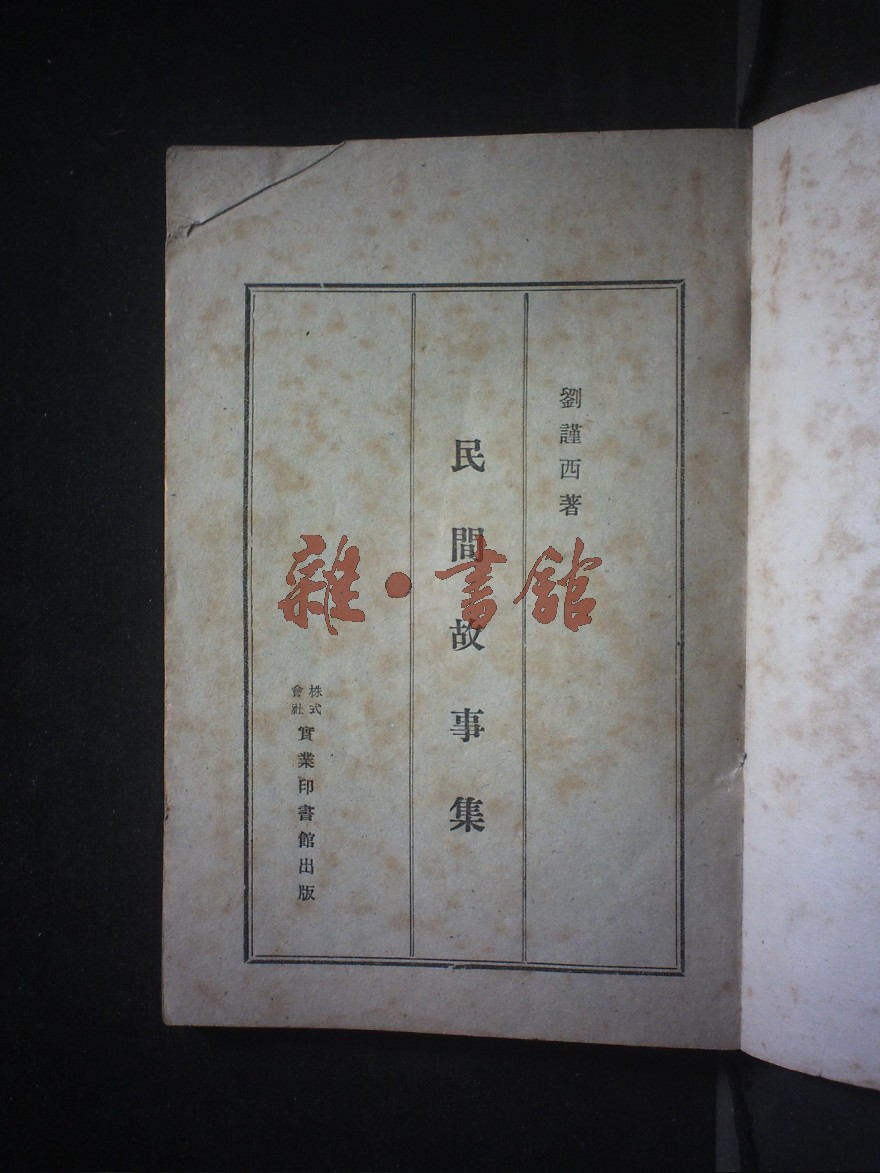 劉謹西著
民間故事集
株式會社實業印書館出版
雜·書館